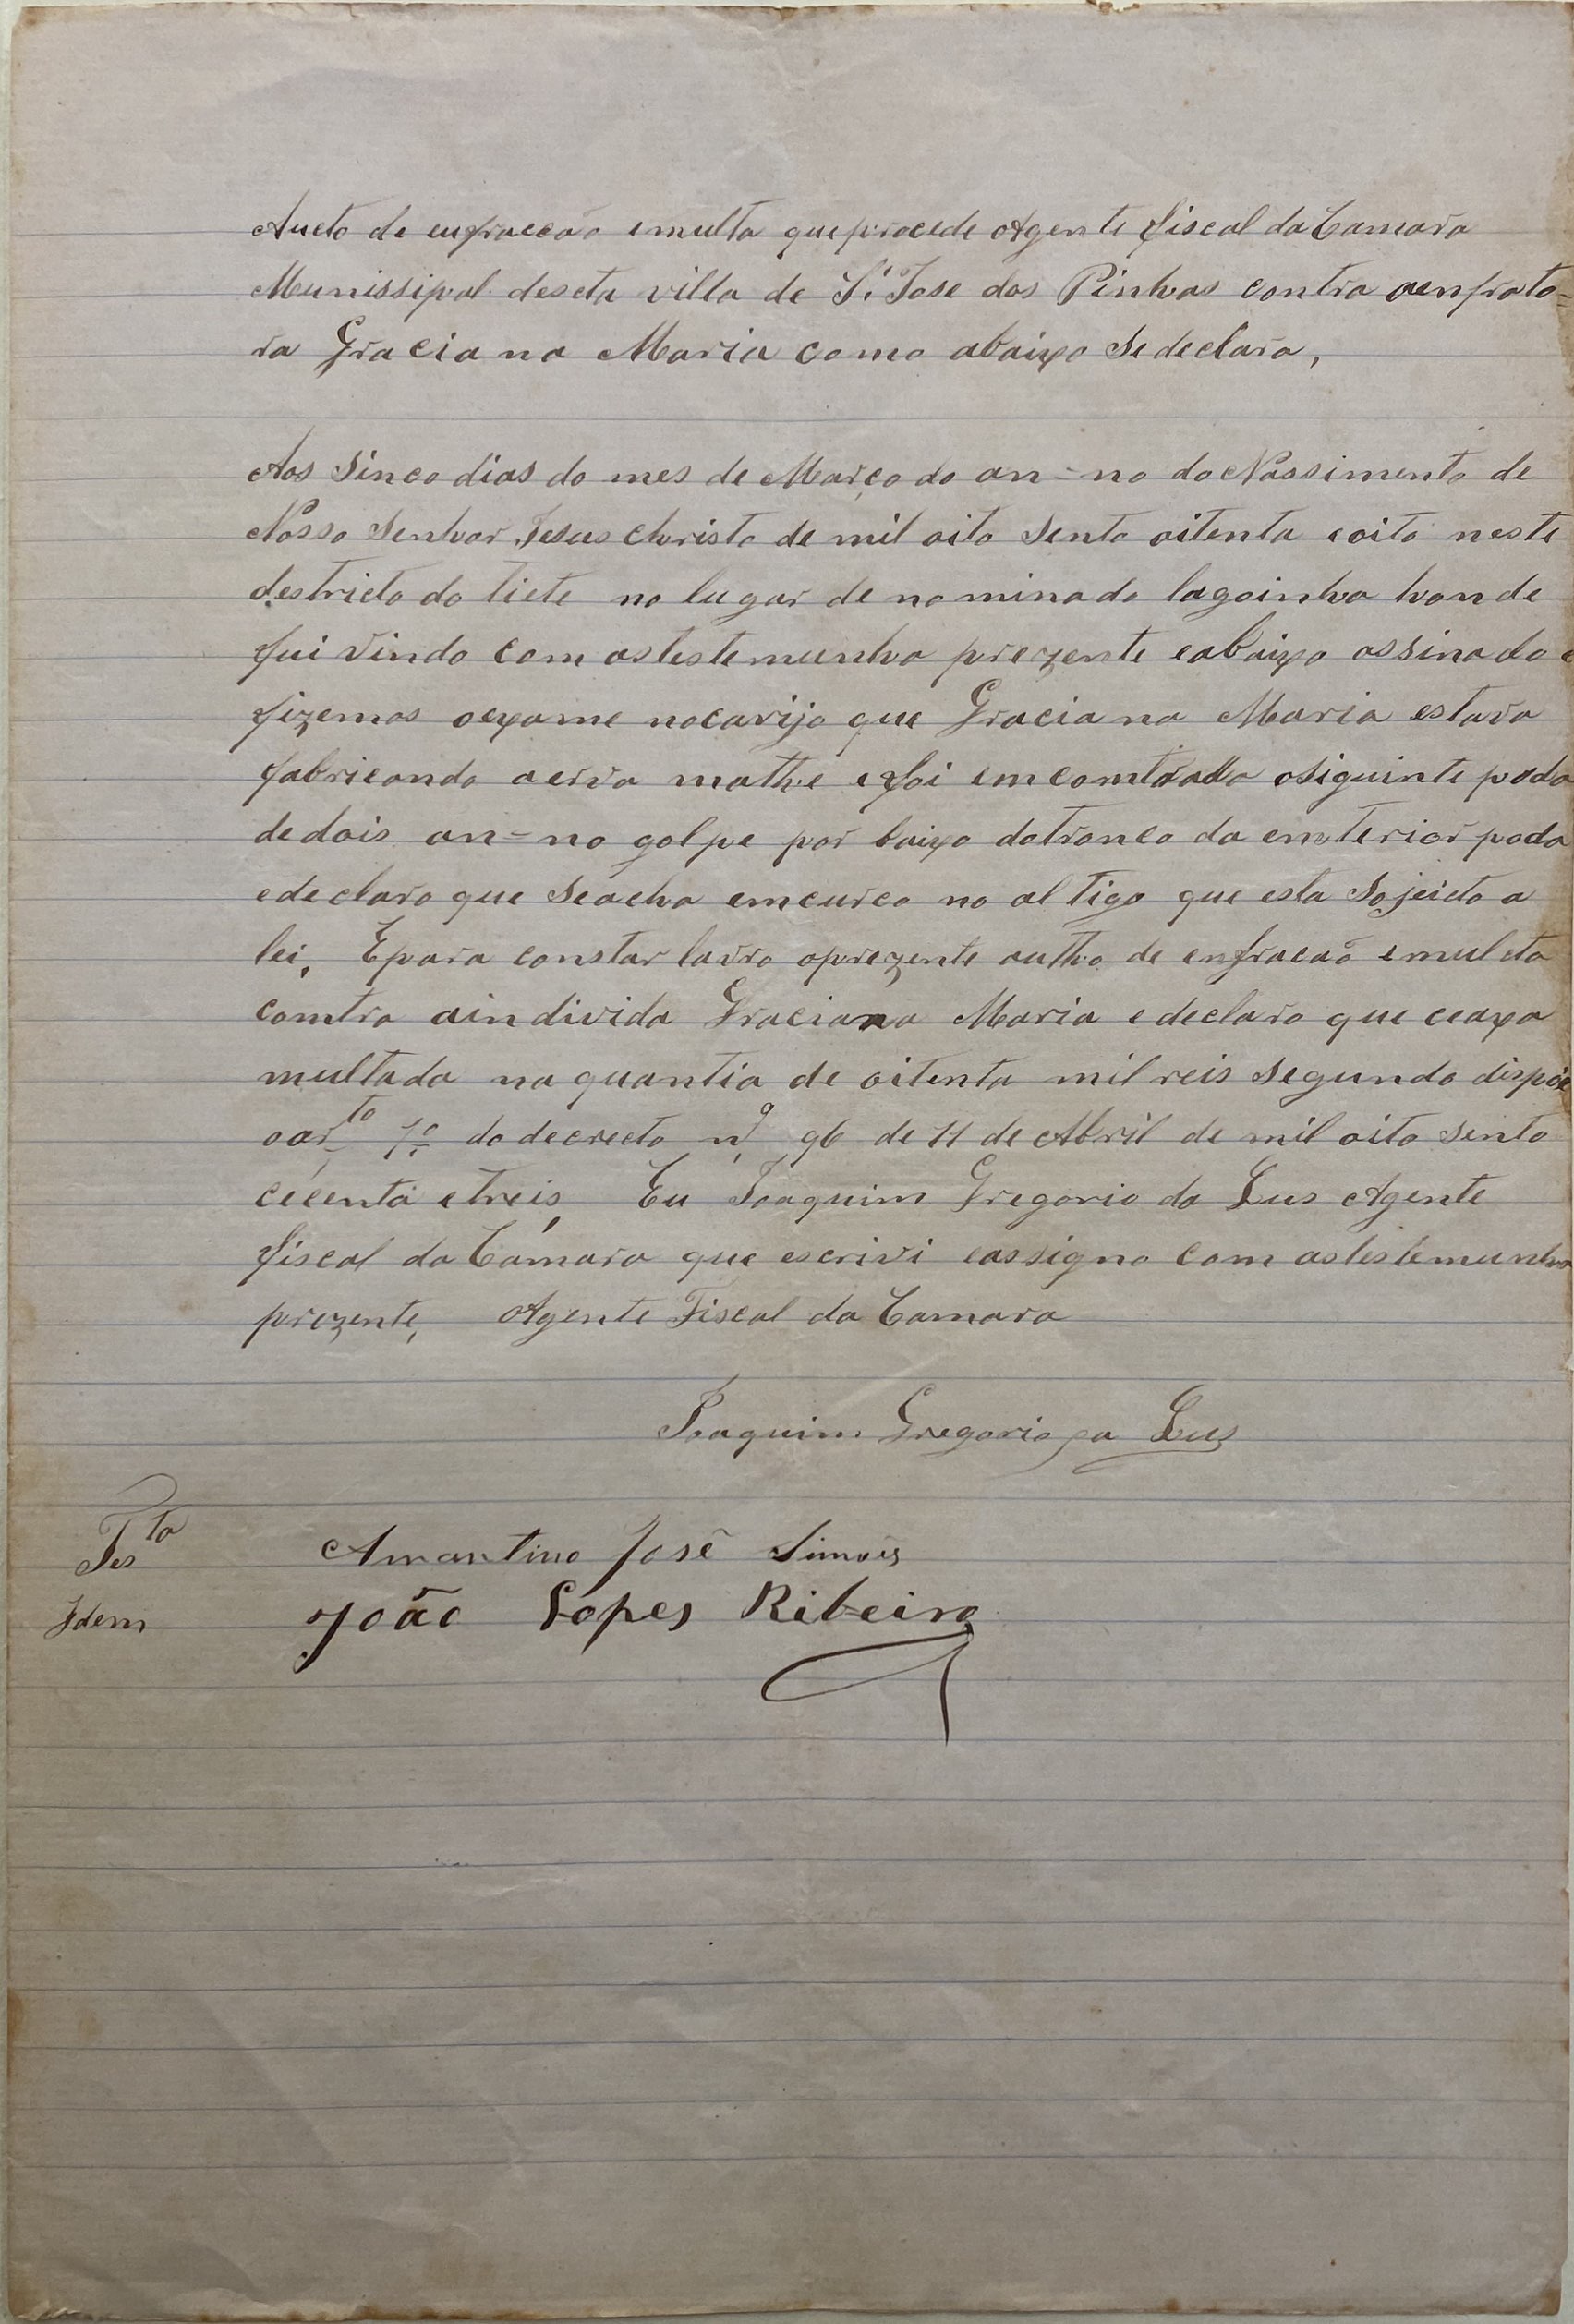 Aucto de enfraccão e multa que procede Agente fiscal da Camara
Munissipal descta villa de S. Jose dos Pinhas contra a enfrato=
ra Graciana Maria como abaixo se declara,
Aos Sinco dias do mes de Março do an=no do Nassimento de
Nosso Senhor Jesus Christo de mil oito Sento oitenta e oito neste
destricto do tiete no lugar de nominado lagoinha honde
fui vindo com as testemunha prezente e abaixo assinado e
fizemos o exame no carijo que Graciana Maria estava
fabricando a erva mathe e foi emcomtrada o siguinte poda
de dois an=no golpe por baixo do tronco da enterior poda
e declaro que Se acha emcurco no altigo que esta Sojeicto a
lei, E para constar lavro o prezente autho de enfracaõ e multa
comtra a individa Graciana Maria e declaro que ceaxa
multada na quantia de oitenta mil reis Segundo dispõe
o arto 7o do decrecto no 96 de 11 de Abril de mil oito sento
cecenta e treis, Eu Joaquim Gregorio da Lus Agente
fiscal da Camara que escrivi e assigno com as testemunha
prezente, Agente Fiscal da Camara
Joaquim Gregorio da Lus
Testa Amantino José Simoẽs
Idem João Lopes Ribeiro